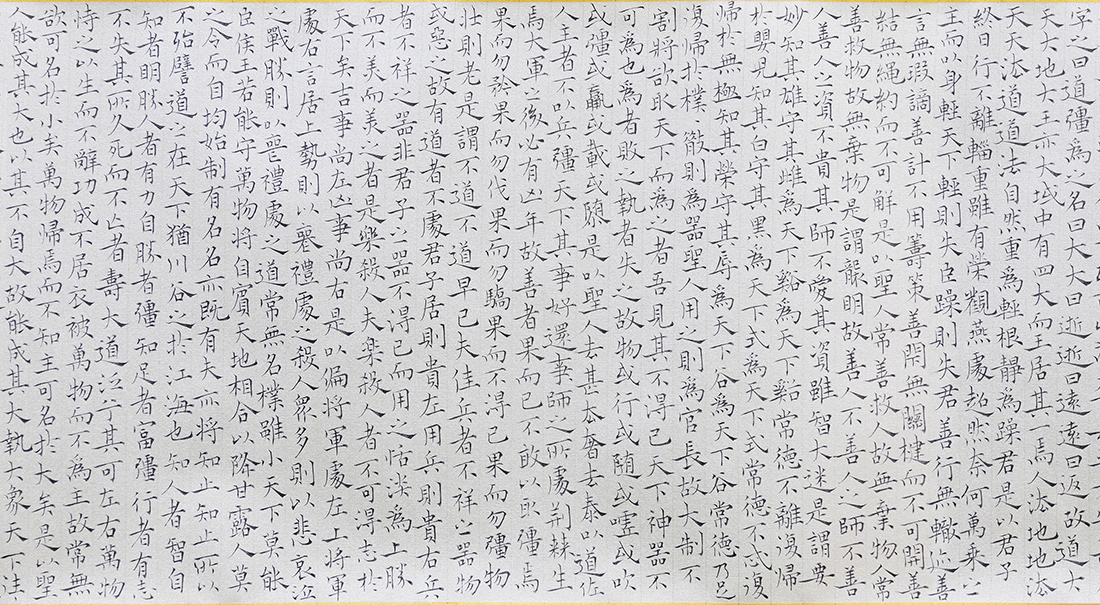 字之曰道彊為之名曰大大曰逝逝曰遠遠曰返故道大
天大地大王亦大域中有四大而王居其一焉人法地地法
天天法道道法自然重為輕根靜為躁君是以君子
終日行不離輜重雖有榮觀燕處超然奈何萬乘之
主而以身輕天下輕則失臣躁則失君善行無轍迹善
言無瑕謫善計不用籌策善閉無關楗而不可開善
結無繩約而不可解是以聖人常善救人故無棄物人常
善救物故無棄物是謂襲明故善人不善人之師不善
人善人之資不貴其師不愛其資雖智大迷是謂要
妙知其雄守其雌為天下谿為天下谿常德不離復歸
於嬰兒知其白守其黑為天下式為天下式常德不忒復
歸於無極知其榮守其辱為天下谷為天下谷常德乃足
復歸於樸樸散則為器聖人用之則為官長故大制不
割將欲取天下而為之者吾見其不得已天下神器不
可為也為者敗之執者失之故物或行或随或噓或吹
或彊或羸或載或隳是以聖人去甚去奢去泰以道佐
人主者不以兵彊天下其事好還事師之所處荊棘生
焉大軍之後必有凶年故善者果而已不敢以取彊焉
果而勿矜果而勿伐果而勿驕果而不得已果而勿彊物
壯則老是謂不道不道早已夫佳兵者不祥之器物
或惡之故有道者不處君子居則貴左用兵則貴右兵
者不祥之器非君子之器不得已而用之恬淡為上勝
而不美而美之者是樂殺人夫樂殺人者不可得志於
天下矣吉事尚左凶事尚右是以偏將軍處左上將軍
處右言居上勢則以喪禮處之殺人眾多則以悲哀泣
之戰勝則以喪禮處之道常無名樸雖小天下莫能
臣侯王若能守萬物將自賓天地相合以降甘露人莫
之令而自均始制有名名亦既有夫亦將知止知止所以
不殆譬道之在天下猶川谷之於江海也知人者智自
知者明勝人者有力自勝者彊知足者富彊行者有志
不失其所久死而不亡者壽大道泛兮其可左右萬物
恃之以生而不辭功成不居衣被萬物而不為主故常無
欲可名於小矣萬物歸焉而不知主可名於大矣是以聖
人能成其大也以其不自大故能成其大執大象天下往